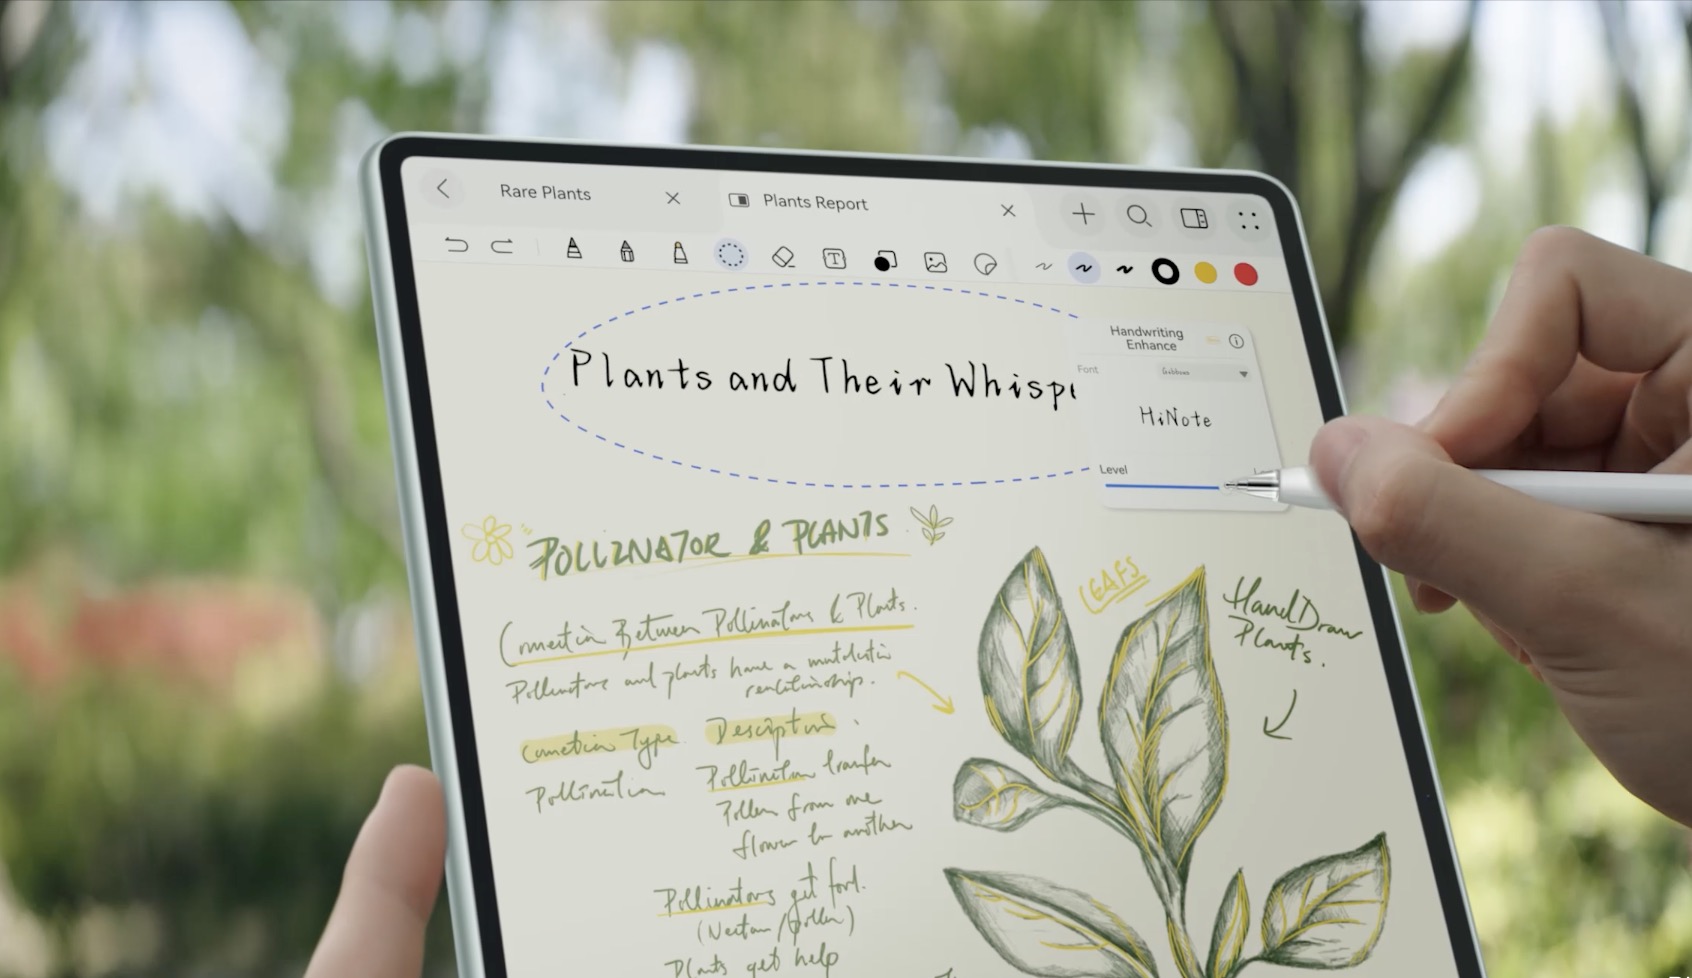 Rare Plants
Plants Report
Plants and Their Whisp
Handwriting
Enhance
Font
HiNote
Level
POLLINATOR & PLANTS
Connection Between Pollinators & Plants.
Pollinators and plants have a
relationship.
LEAFS
HandDraw
Plants.
Conection Type
Description
Pollination
Pollination transfer
Pollen from one
flower to another
Pollinators get food.
(Nectar/pollen)
Plants get help